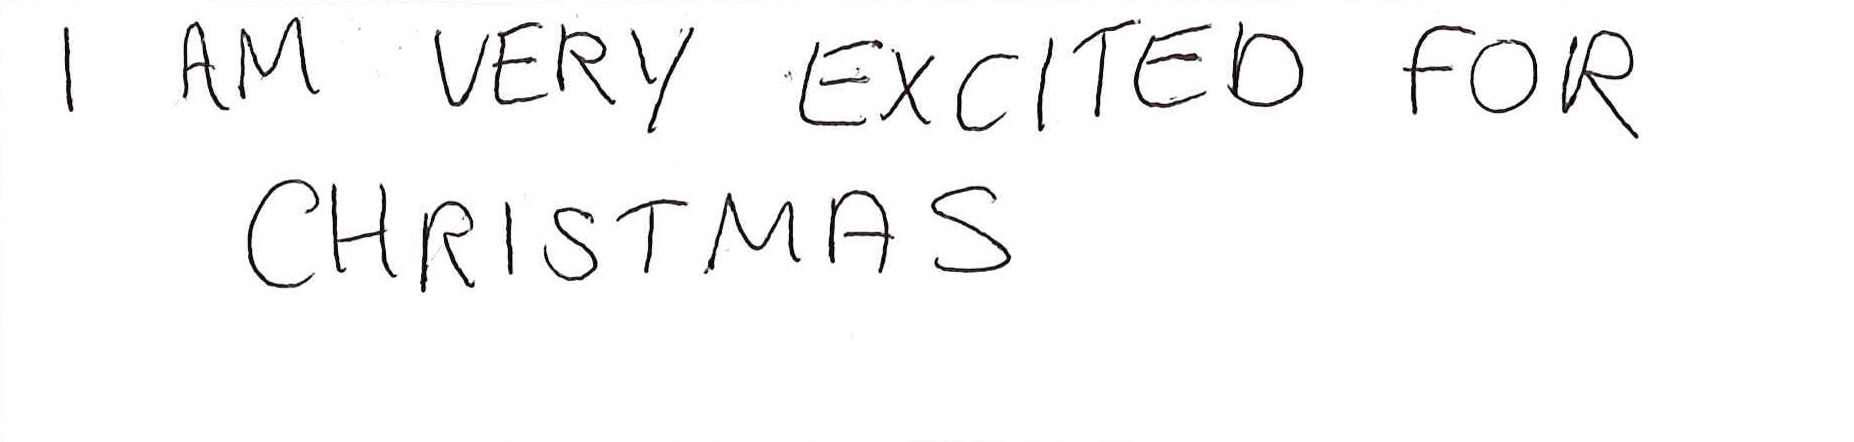 I AM VERY EXCITED FOR
CHRISTMAS